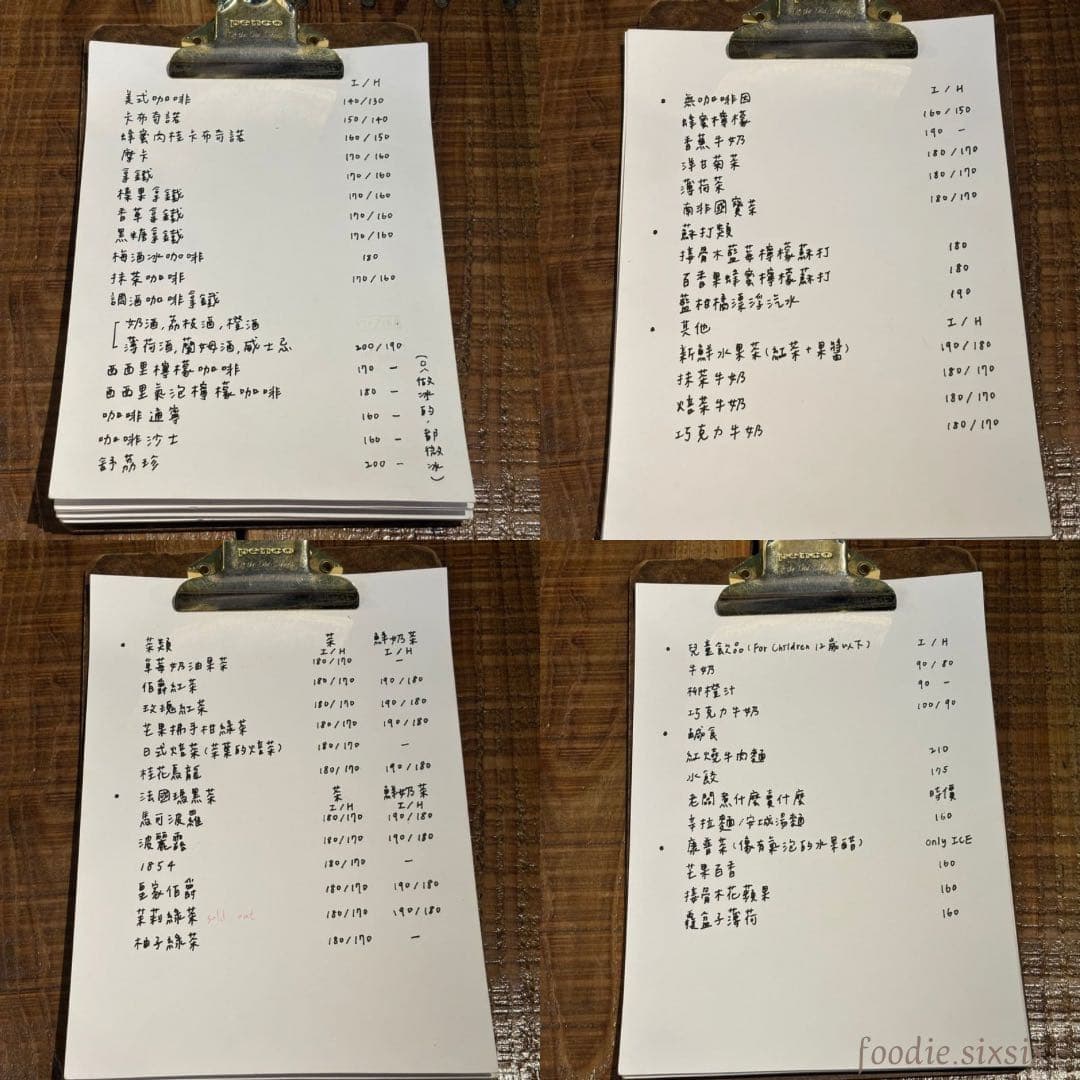 penco
I / H
美式咖啡 140/130
卡布奇諾 150/140
蜂蜜肉桂卡布奇諾 160/150
摩卡 170/160
拿鐵 170/160
榛果拿鐵 170/160
香草拿鐵 170/160
黑糖拿鐵 170/160
梅酒冰咖啡 180
抹茶咖啡 170/160
調酒咖啡拿鐵
奶酒,荔枝酒,橙酒
薄荷酒,蘭姆酒,威士忌 200/190
西西里檸檬咖啡 170 –
西西里氣泡檸檬咖啡 180 –
咖啡通寧 160 –
咖啡沙士 160 –
舒荔珍 200 –
(只做冰的,都微冰)
penco
I / H
• 無咖啡因
蜂蜜檸檬 160/150
香蕉牛奶 190 –
洋甘菊茶 180/170
薄荷茶 180/170
南非國寶茶 180/170
• 蘇打類
接骨木藍莓檸檬蘇打 180
百香果蜂蜜檸檬蘇打 180
藍柑橘漂浮汽水 190
• 其他 I / H
新鮮水果茶(紅茶+果醬) 190/180
抹茶牛奶 180/170
焙茶牛奶 180/170
巧克力牛奶 180/170
penco
• 茶類 茶 鮮奶茶
I / H I / H
草莓奶油果茶 180/170 –
伯爵紅茶 180/170 190/180
玫瑰紅茶 180/170 190/180
芒果拂手柑綠茶 180/170 190/180
日式焙茶(茶葉的焙茶) 180/170 –
桂花烏龍 180/170 190/180
• 法國瑪黑茶 茶 鮮奶茶
I / H I / H
馬可波羅 180/170 190/180
波麗露 180/170 190/180
1854 180/170 –
皇家伯爵 180/170 190/180
茉莉綠茶 sold out 180/170 190/180
柚子綠茶 180/170 –
penco
• 兒童飲品(For Children 12歲以下) I / H
牛奶 90/80
柳橙汁 90 –
巧克力牛奶 100/90
• 鹹食
紅燒牛肉麵 210
水餃 175
老闆煮什麼賣什麼 時價
辛拉麵/安城湯麵 160
• 康普茶(像有氣泡的水果醋) only ICE
芒果百香 160
接骨木花蘋果 160
覆盆子薄荷 160